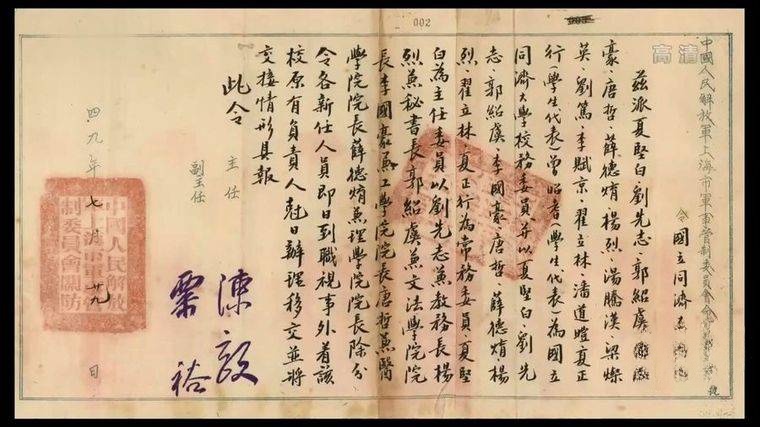 002
高清
中國人民解放軍上海市軍事管制委員會命令
號
令國立同濟大學
茲派夏堅白劉先志、郭紹虞
豪、唐哲、薛德焴、楊烈、湯騰漢、梁燦
英、劉篤、李賦京、翟立林、潘道皚、夏正
行(學生代表)曾昭耆(學生代表)為國立
同濟大學校務委員、并以夏堅白、劉先
志、郭紹虞、李國豪、唐哲、薛德焴、楊
烈、翟立林、夏正行為常務委員、夏堅
白為主任委員以劉先志兼教務長楊
烈兼秘書長郭紹虞兼文法學院院
長李國豪兼工學院院長唐哲兼醫
學院院長薛德焴兼理學院院長除分
令各新任人員即日到職視事外着該
校原有負責人尅日辦理移交並將
交接情形具報
此令
主任
陳毅
副主任
粟裕
四九年七月廿九日
中國人民解放
制委員會關防